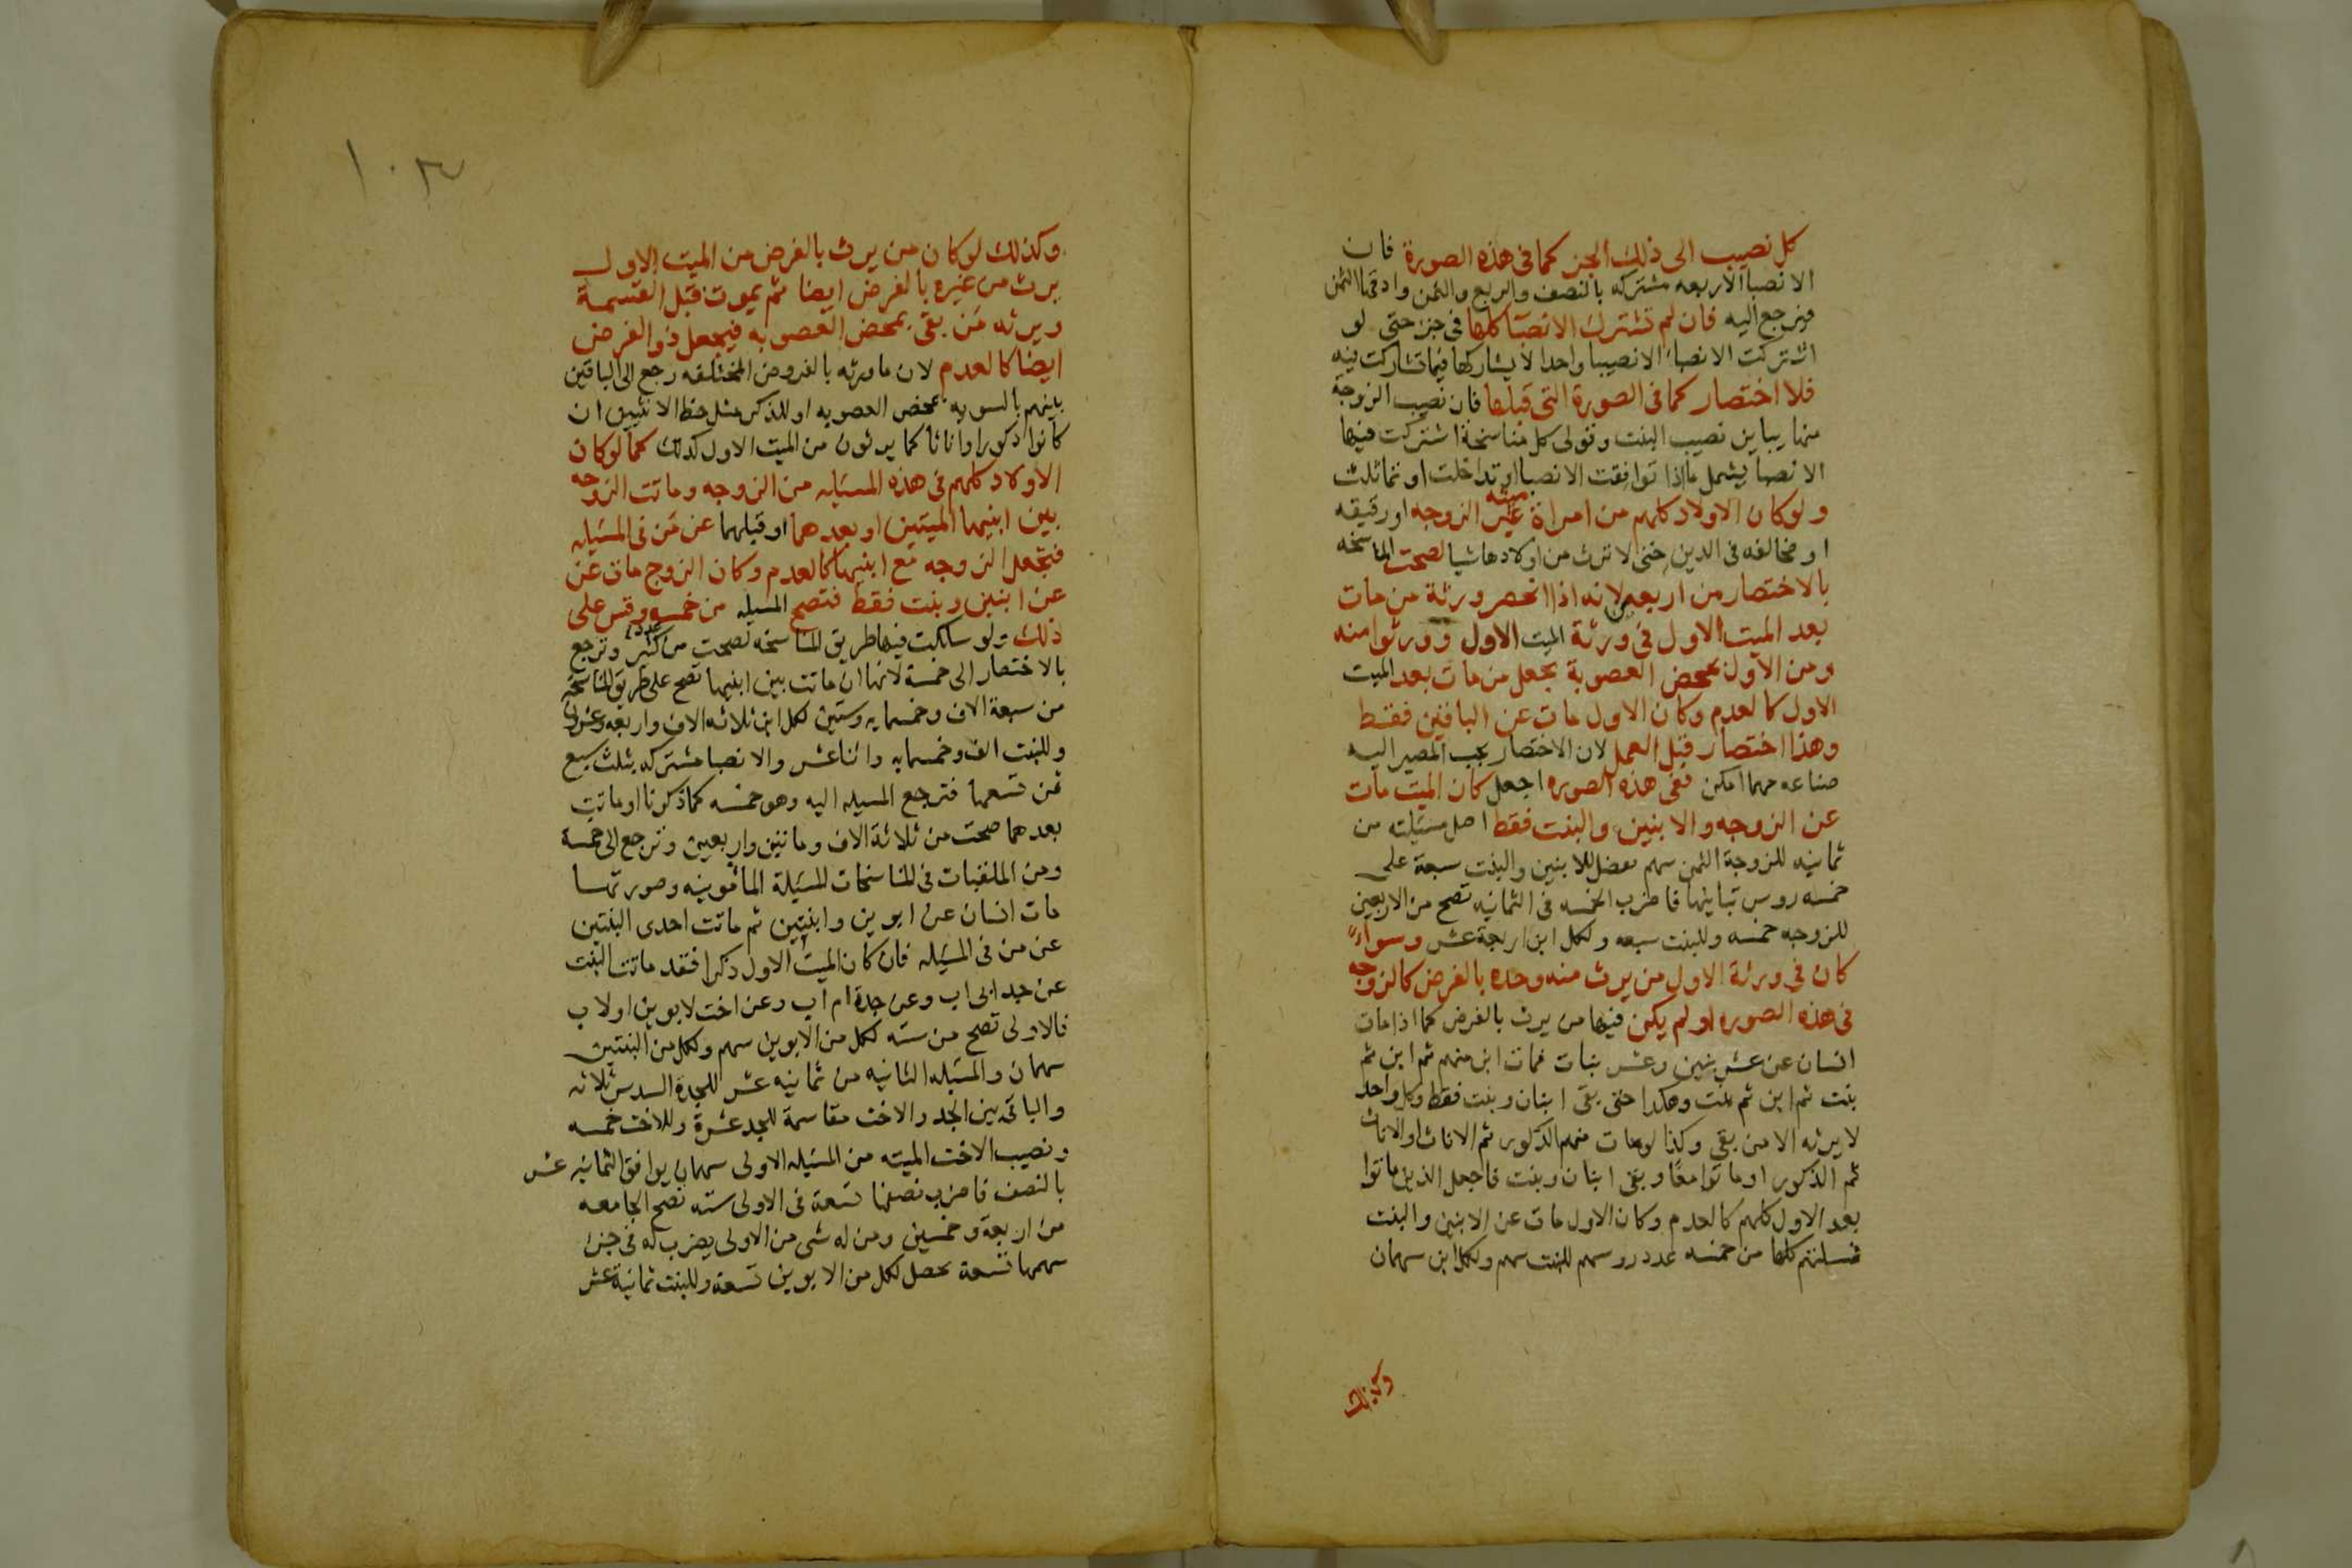 كل نصيب الى ذلك الجز كما فى هذه الصورة فان
الانصبا الاربعه مشتركه بالنصف والربع والثمن وادقها الثمن
فترجع اليه فان لم تشترك الانصبا كلها فى جز حتى لو
اشتركت الانصبا الا نصيبا واحدا لا يشاركها فيما تشاركت فيه
فلا اختصار كما فى الصورة التى قبلها فان نصيب الزوجة
منها يباين نصيب البنت وقولى كل مناسخة اشتركت فيها
الانصبا يشمل ما اذا توافقت الانصبا او تداخلت او تماثلت
ولو كان الاولاد كلهم من امراة ميته غير الزوجه او رقيقه
او مخالفه فى الدين حتى لا ترث من اولادها شيا لصحت المناسخه
بالاختصار من اربعين لانه اذا انحصر ورثة من مات
بعد الميت الاول فى ورثة الميت الاول وورثوا منه
ومن الاول بمحض العصوبة يجعل من مات بعد الميت
الاول كالعدم وكان الاول مات عن الباقين فقط
وهذا اختصار قبل العمل لان الاختصار يجب المصير اليه
صناعه مهما امكن ففى هذه الصوره اجعل كان الميت مات
عن الزوجه والابنين والبنت فقط اصل مسئلته من
ثمانيه للزوجة الثمن سهم يفضل للابنين والبنت سبعة على
خمسه روس تباينها فاضرب الخمسه فى الثمانيه تصح من الاربعين
للزوجه خمسه وللبنت سبعه ولكل ابن اربعة عشر وسواء
كان فى ورثة الاول من يرث منه وحده بالفرض كالزوجه
فى هذه الصوره او لم يكن فيها من يرث بالفرض كما اذا مات
انسان عن عشر بنين وعشر بنات فمات ابن منهم ثم ابن ثم
بنت ثم ابن ثم بنت وهكدا حتى بقى ابنان وبنت فقط وكل واحد
لا يرثه الا من بقى وكذا لو مات منهم الذكور ثم الاناث او الاناث
ثم الذكور او ماتوا معًا وبقى ابنان وبنت فاجعل الذين ماتوا
بعد الاول كلهم كالعدم وكان الاول مات عن الابنين والبنت
فمسئلتهم كلها من خمسه عدد روسهم للبنت سهم ولكل ابن سهمان
وكذلك
١٠٣
وكذلك لو كان من يرث بالفرض من الميت الاول
يرث من غيره بالفرض ايضا ثم يموت قبل القسمة
ويرثه مَن بقى بمحض العصوبه فيجعل ذو الفرض
ايضا كالعدم لان ما ورثه بالفروض المختلفه رجع الى الباقين
بينهم بالسويه بمحض العصوبه او للذكر مثل حظ الانثيين ان
كانوا ذكورا واناثا كما يرثون من الميت الاول كذلك كما لو كان
الاولاد كلهم فى هذه المسئله من الزوجه وماتت الزوجه
بين ابنيها الميتين او بعدهما او قبلهما عن مَن فى المسئله
فتجعل الزوجه مع ابنيها كالعدم وكان الزوج مات عن
عن ابنين وبنت فقط فتصح المسئله من خمسه وقس على
ذلك ولو سلكت فيها طريق المناسخه لصحت من عدد كثير وترجع
بالاختصار الى خمسة لانها ان ماتت بين ابنيها تصح على طريق المناسخه
من سبعة الاف وخمسمايه وستين لكل ابن ثلاثه الاف واربعه وعشرون
وللبنت الف وخمسمايه واثنا عشر والانصبا مشتركه بثلث سبع
ثمن تسعها فترجع المسئله اليه وهو خمسه كما ذكرنا او ماتت
بعدهما صحت من ثلاثة الاف ومائتين واربعين وترجع الى خمسة
ومن الملقبات فى المناسخات المسئلة المأمونيه وصورتها
مات انسان عن ابوين وابنتين ثم ماتت احدى البنتين
عن من فى المسئله فان كان الميت الاول ذكرا فقد ماتت البنت
عن جد ابى اب وعن جدة ام اب وعن اخت لابوين او لاب
فالاولى تصح من سته لكل من الابوين سهم ولكل من البنتين
سهمان والمسئله الثانيه من ثمانيه عشر للجدة السدس ثلاثه
والباقى بين الجد والاخت مقاسمة للجد عشرة وللاخت خمسه
ونصيب الاخت الميته من المسئله الاولى سهمان يوافق الثمانيه عشر
بالنصف فاضرب نصفها تسعة فى الاولى سته تصح الجامعه
من اربعة وخمسين ومن له شى من الاولى يضرب له فى جزء
سهمها تسعة يحصل لكل من الابوين تسعة وللبنت ثمانية عشر